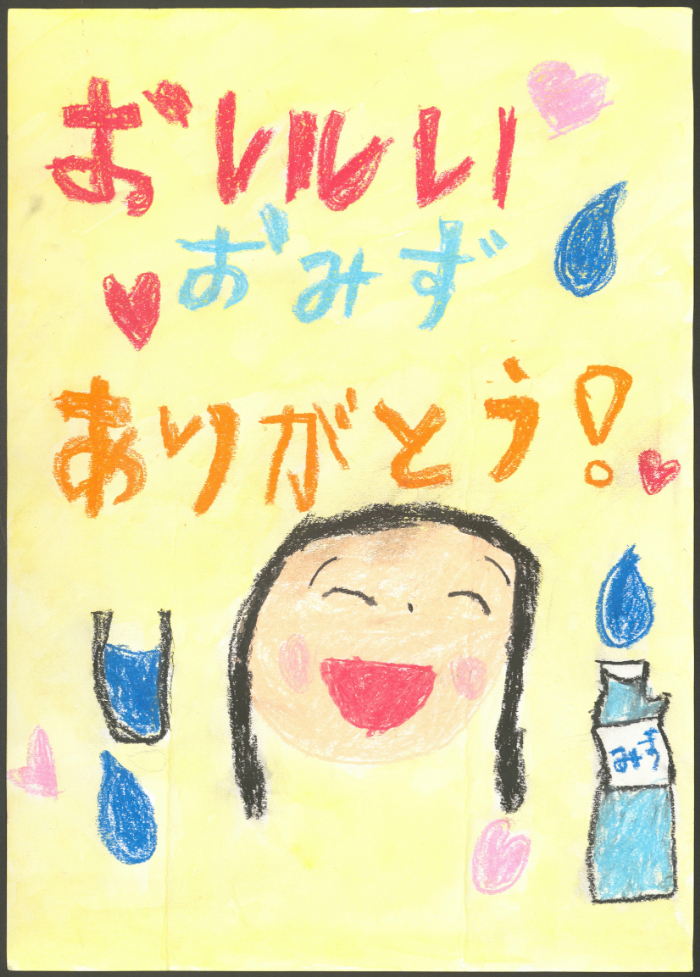 おいしい
おみず
ありがとう!
みず